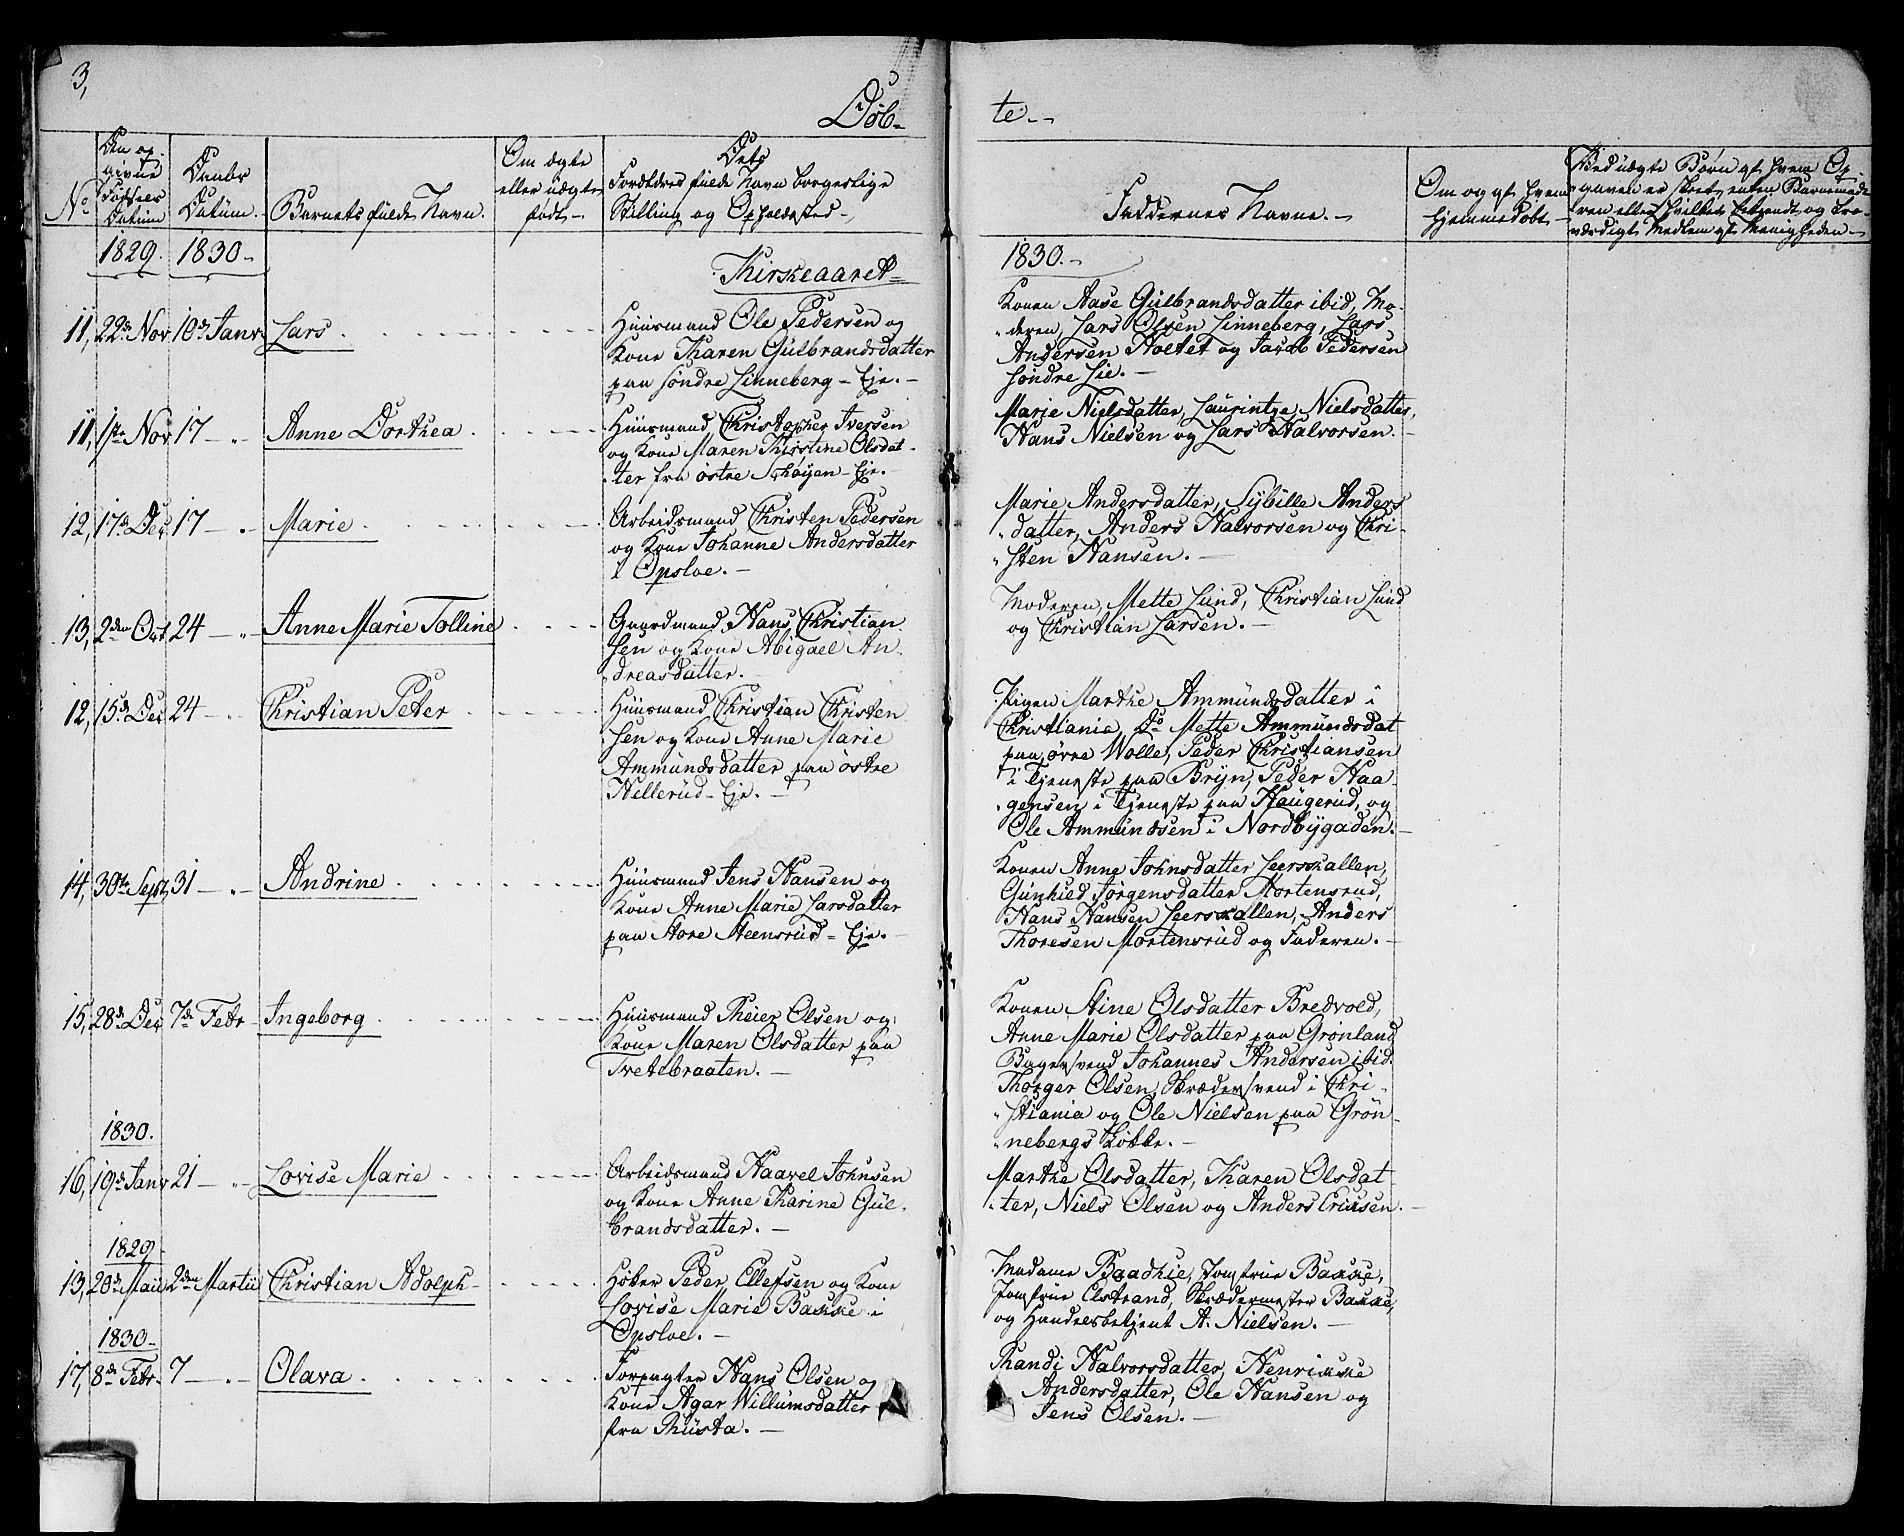 3,
Døb-
te.-
No
Den op-
givne
Fødsels
Datum
Daabs
Datum.
Barnets fulde Navn.
Om ægte
eller uægte
født-
Dets
Forældres fulde Navn borgerlige
Stilling og Opholdssted-
Faddernes Navne.-
Om og af hvem
hjemmedøbt-
Ved uægte Børn af hvem Op-
gaven er skeet, enten Barnemode-
ren eller hvilket bekjendt og tro-
værdigt Medlem af Menigheden-
1829. 1830-
Kirkeaaret
1830.-
11, 22de Nov 10de Janr Lars
Huusmand Ole Pedersen og
Kone Karen Gulbrandsdatter
paa søndre Linneberg-Eje.-
Konen Aase Gulbrandsdatter ibid, Mo-
deren, Lars Olsen Linneberg, Lars
Andersen Holtet og Jacob Pedersen
søndre Lie.-
11, 1ste Nov 17 - " Anne Dorthea
Huusmand Christopher Iversen
og Kone Maren Kirstine Olsdat-
ter fra østre Schøyen-Eje.-
Marie Nielsdatter, Laurintze Nielsdatter,
Hans Nielsen og Lars Halvorsen.-
12, 17de Dec 17 - " Marie
Arbeidsmand Christen Pedersen
og Kone Johanne Andersdatter
i Opsloe.-
Marie Andersdatter, Sybille Anders
datter, Anders Halvorsen og Chri-
sten Hansen.-
13, 2den Oct 24 - " Anne Marie Tolline
Gaardmand Hans Christian
sen og Kone Abigael An-
dreasdatter.
Moderen, Mette Lund, Christian Lund
og Christian Larsen.-
12, 15de Dec 24 - " Christian Peter
Huusmand Christian Christen
sen og Kone Anne Marie
Ammundsdatter paa østre
Hellerud-Eje.-
Pigen Marthe Ammundsdatter i
Christiania, Do Mette Ammundsdat
paa øvre Wolle, Peder Christiansen
i Tjeneste paa Bryn, Peder Haa-
gensen i Tjeneste paa Haugerud, og
Ole Ammundsen i Nordbygaden.-
14, 30te Sept, 31 - " Andrine
Huusmand Jens Hansen og
Kone Anne Marie Larsdatter
paa Store Steensrud-Eje.-
Konen Anne Johnsdatter Leerskallen,
Gunhild Jørgensdatter Mortensrud,
Hans Hansen Leerskallen, Anders
Thoresen Mortensrud og Faderen.-
15, 28de Dec 7de Febr Ingeborg
Huusmand Reier Olsen og
Kone Maren Olsdatter paa
Tvetebraaten.-
Konen Stine Olsdatter Bredvold,
Anne Marie Olsdatter paa Grønland
Bagersvend Johannes Andersen ibid.
Thorger Olsen, Skrædersvend i Chri-
stiania og Ole Nielsen paa Grøn-
nebergs Løkke.-
1830.
16, 19de Janr 21 - " Lovise Marie
Arbeidsmand Haavel Johnsen
og Kone Anne Karine Gul-
brandsdatter.-
Marthe Olsdatter, Karen Olsdat-
ter, Niels Olsen og Anders Ericksen.
1829
13, 20de Maii 2den Martii Christian Adolph-
Høker Peder Ellefsen og Kone
Lovise Marie Bakke i
Opsloe.-
Madame Baadhie, Jomfrue Bakke,
Jomfrue Elstrand, Skrædermester Bakke,
og Handelsbetjent A. Nielsen.-
1830-
17, 8de Febr. 7 - " Olava
Forpagter Hans Olsen og
Kone Agar Willumsdatter
fra Rusta.-
Randi Halvorsdatter, Henrikke
Andersdatter, Ole Hansen og
Jens Olsen.-